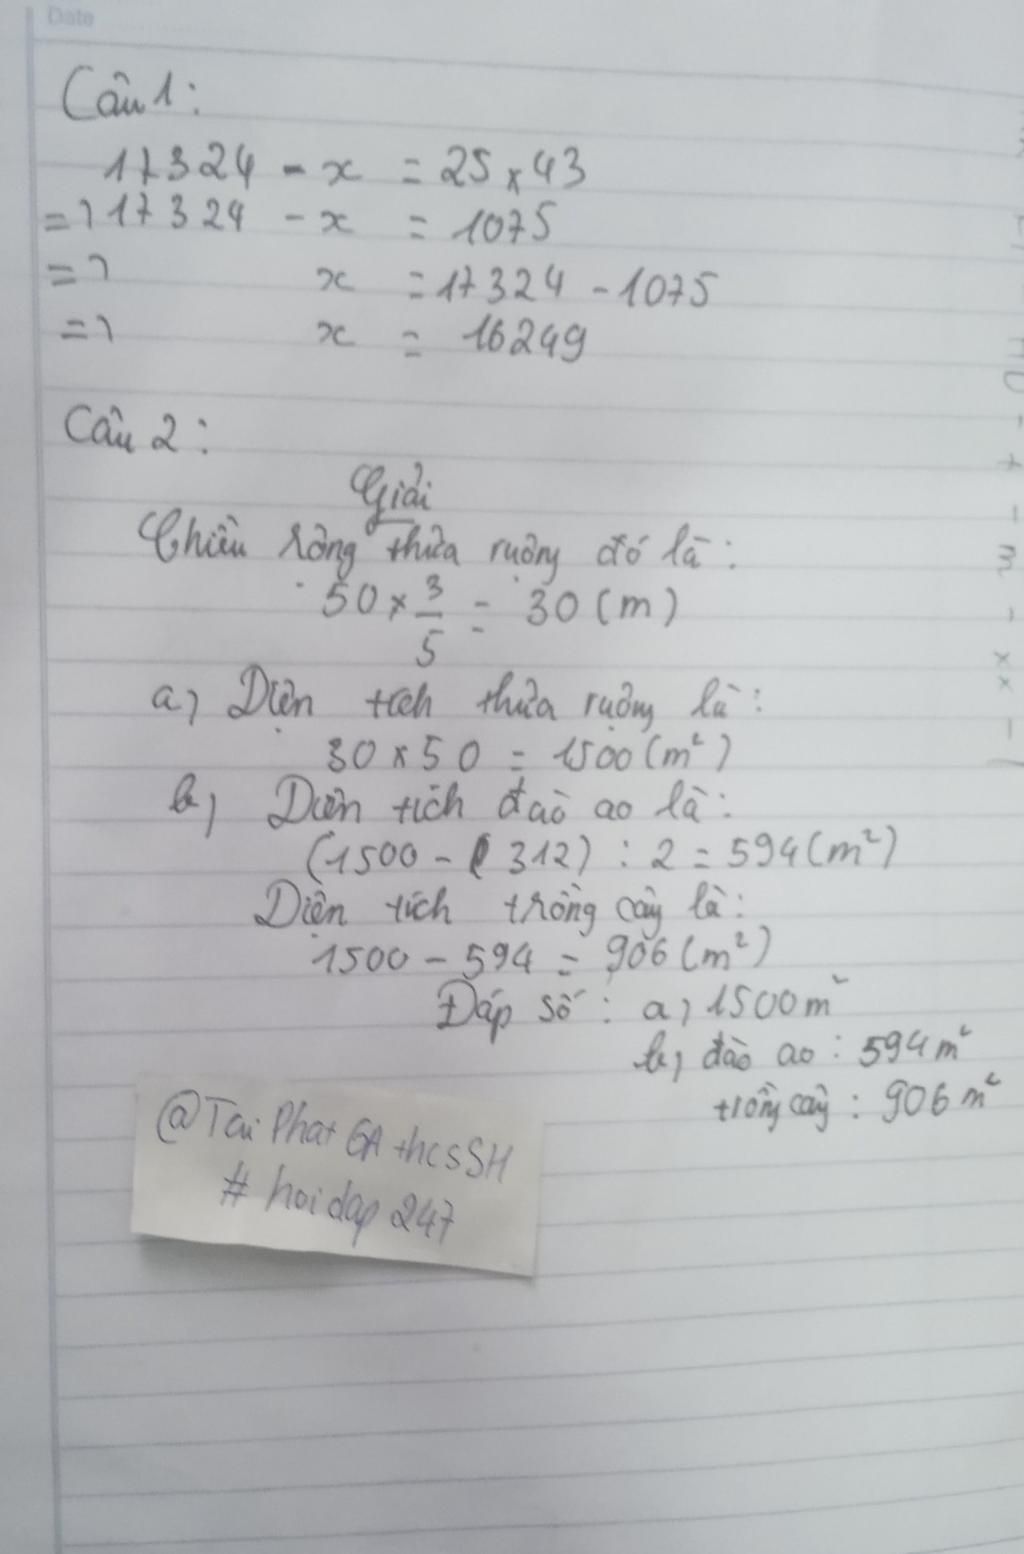 Date
Câu 1:
17324 - x = 25 x 43
=> 17324 - x = 1075
=> x = 17324 - 1075
=> x = 16249
Câu 2:
Giải
Chiều rộng thửa ruộng đó là:
50 x 3/5 = 30 (m)
a) Diện tích thửa ruộng là:
30 x 50 = 1500 (m²)
b) Diện tích đào ao là:
(1500 - 312) : 2 = 594 (m²)
Diện tích trồng cây là:
1500 - 594 = 906 (m²)
Đáp số : a) 1500 m²
b) đào ao : 594 m²
trồng cây : 906 m²
@Tai Phat 6A thcs SH
# hoidap 247